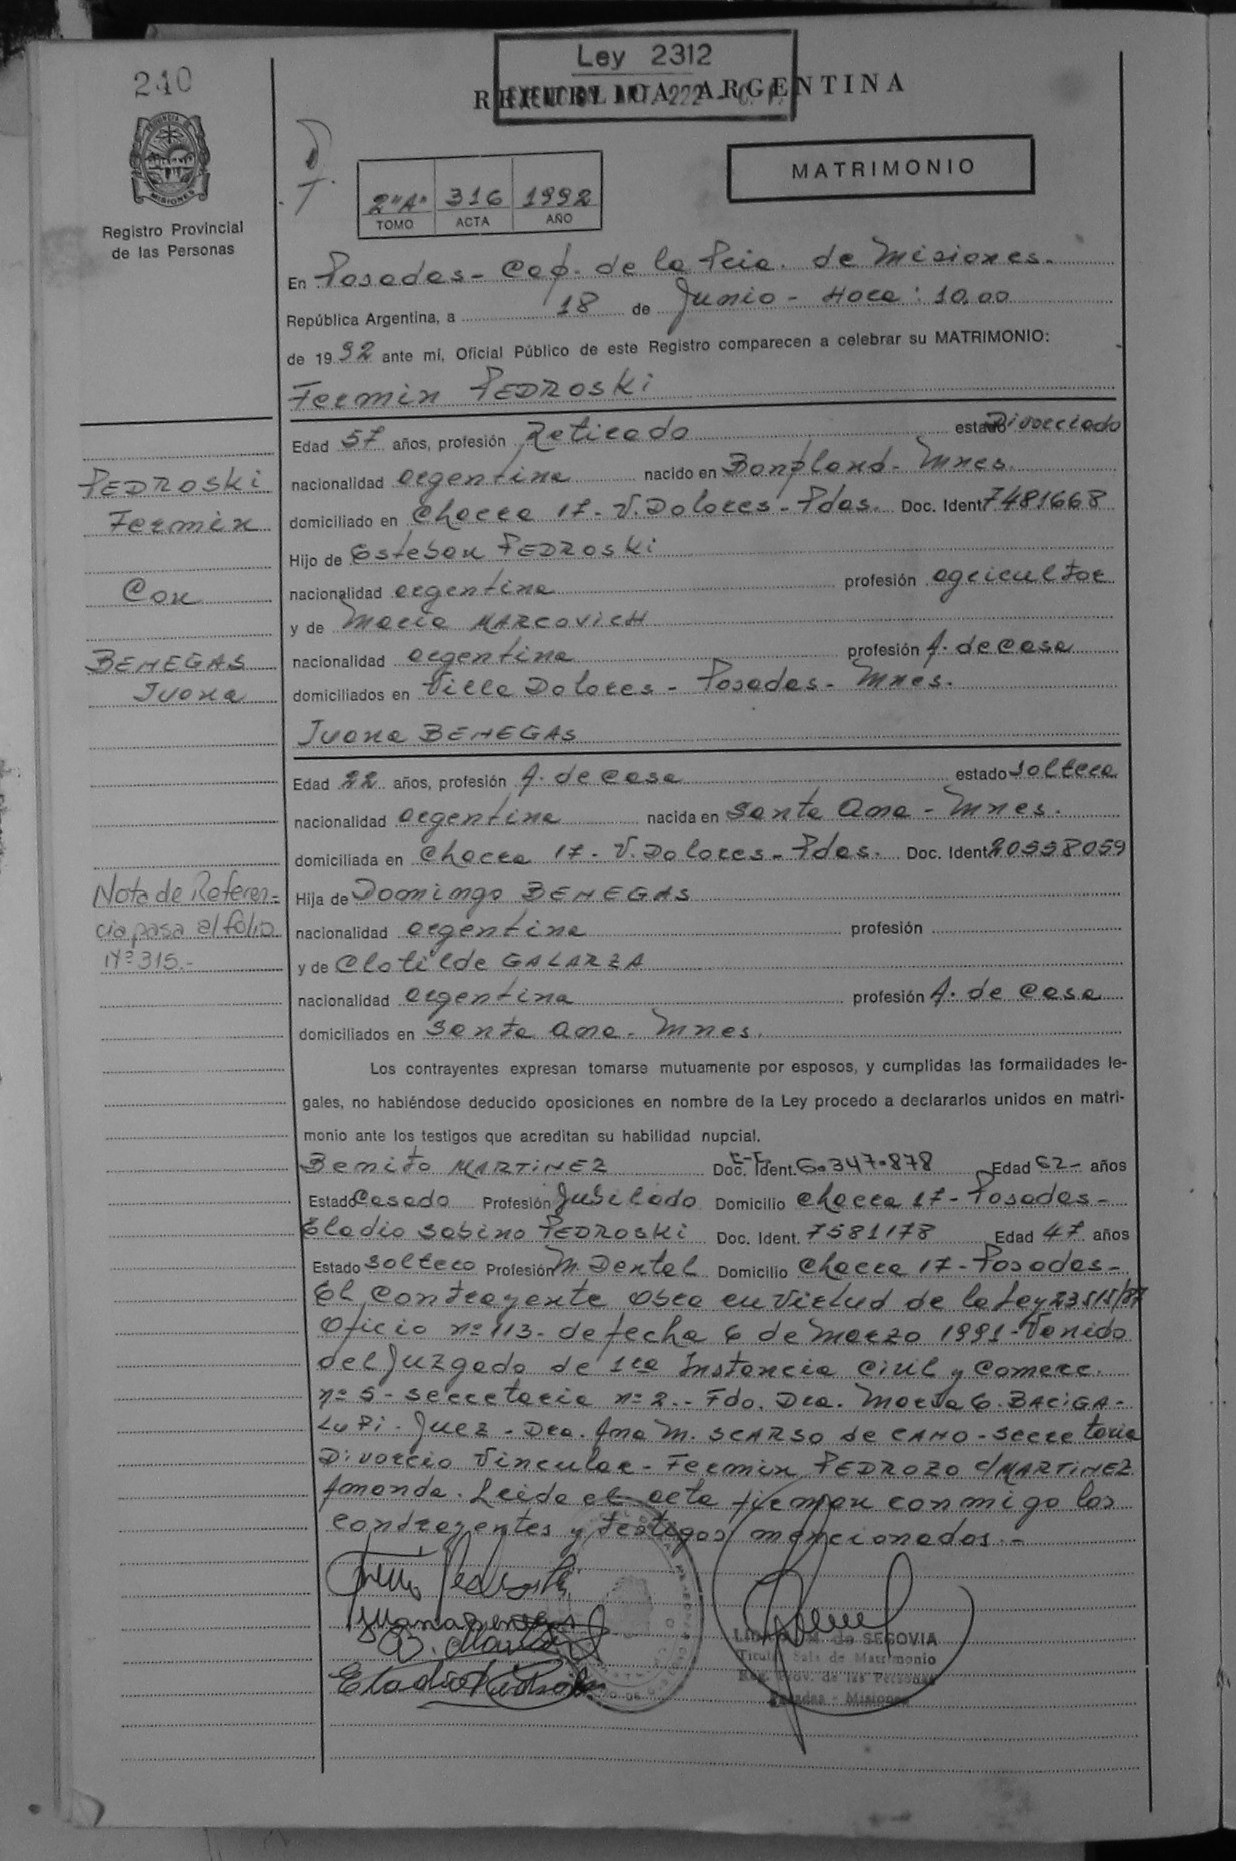 240
Ley 2312
REPUBLICA ARGENTINA
MATRIMONIO
2"A" 316 1992
TOMO ACTA AÑO
PROVINCIA DE MISIONES
Registro Provincial
de las Personas
En Posadas - Cap. de la Pcia. de Misiones.
República Argentina, a 18 de Junio - Hora: 10,00
de 1992 ante mí, Oficial Público de este Registro comparecen a celebrar su MATRIMONIO:
Fermin PEDROSKi
Edad 57 años, profesión Retirado estado Divorciado
nacionalidad argentina nacido en Bonpland - Mnes.
domiciliado en Chacra 17 - V. Dolores - Pdas. Doc. Ident 7481668
Hijo de Esteban PEDROSKi
nacionalidad argentina profesión agricultor
y de María MARCOVICH
nacionalidad argentina profesión A. de Casa
domiciliados en Villa Dolores - Posadas - Mnes.
Juana BENEGAS
Edad 22 años, profesión A. de Casa estado soltera
nacionalidad argentina nacida en Santa Ana - Mnes.
domiciliada en Chacra 17 - V. Dolores - Pdas. Doc. Ident 20558059
Hija de Domingo BENEGAS
nacionalidad argentina profesión
y de Clotilde GALARZA
nacionalidad argentina profesión A. de Casa
domiciliados en Santa Ana - Mnes.
PEDROSKi
Fermin
Con
BENEGAS
Juana
Nota de Referen-
cia pasa al folio
Nº 315.-
Los contrayentes expresan tomarse mutuamente por esposos, y cumplidas las formalidades le-
gales, no habiéndose deducido oposiciones en nombre de la Ley procedo a declararlos unidos en matri-
monio ante los testigos que acreditan su habilidad nupcial.
Benito MARTINEZ Doc. Ident. 6.347.878 Edad 62- años
Estado Casado Profesión Jubilado Domicilio Chacra 17 - Posadas -
Eladio Sabino PEDROSKi Doc. Ident. 7581178 Edad 47 años
Estado soltero Profesión M. Dental Domicilio Chacra 17 - Posadas -
El contrayente obra en virtud de la Ley 23515/87
Oficio nº 113 - de fecha 6 de Marzo 1991 - Venido
del Juzgado de 1ra Instancia Civil y Comerc.
nº 5 - secretaria nº 2.- Fdo. Dra. María G. BACiGA-
LUPi. Juez - Dra. Ana M. SCARSO de CANO - Secretaria
Divorcio Vincular - Fermin PEDROZO c/ MARTINEZ
Amanda. Leida el acta firman conmigo los
contrayentes y testigos mencionados.-
Juana Benegas
B. Martinez
Eladio Pedroski
M. de SEGOVIA
Titular Sala de Matrimonio
Reg. Prov. de las Personas
Posadas - Misiones